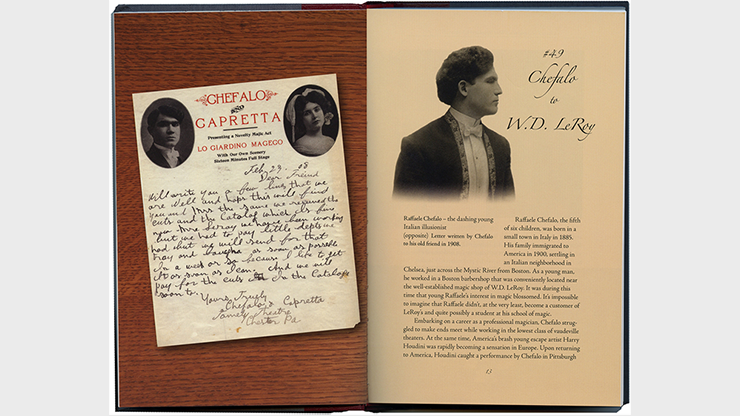 CHEFALO
AND
CAPRETTA
Presenting a Novelty Magic Act
LO GIARDINO MAGECO
With Our Own Scenery
Sixteen Minutes Full Stage
Feb, 29. 08
Dear Friend
Will write you a few lines that we
are well and hope this will find
you and Mrs the same we received the
cuts and the Catalog which
Mrs Leroy we have been working
but we had to pay little depts we
had but we will send for that
tray and as soon as possable
In a week or so because I like to get
it as soon as I can. And we will
pay for the cuts in the Catalog
soon to.
Yours Truely
Chefalo & Capretta
Theatre
Chester Pa.
#49
Chefalo
to
W.D. LeRoy
Raffaele Chefalo – the dashing young
Italian illusionist
(opposite) Letter written by Chefalo
to his old friend in 1908.
Raffaele Chefalo, the fifth
of six children, was born in a
small town in Italy in 1885.
His family immigrated to
America in 1900, settling in
an Italian neighborhood in
Chelsea, just across the Mystic River from Boston. As a young
man, he worked in a Boston barbershop that was conveniently located near
the well-established magic shop of W.D. LeRoy. It was during this
time that young Raffaele's interest in magic blossomed. It's impossible
to imagine that Raffaele didn't, at the very least, become a customer of
LeRoy's and quite possibly a student at his school of magic.
Embarking on a career as a professional magician, Chefalo strug-
gled to make ends meet while working in the lowest class of vaudeville
theaters. At the same time, America's brash young escape artist Harry
Houdini was rapidly becoming a sensation in Europe. Upon returning
to America, Houdini caught a performance by Chefalo in Pittsburgh
13